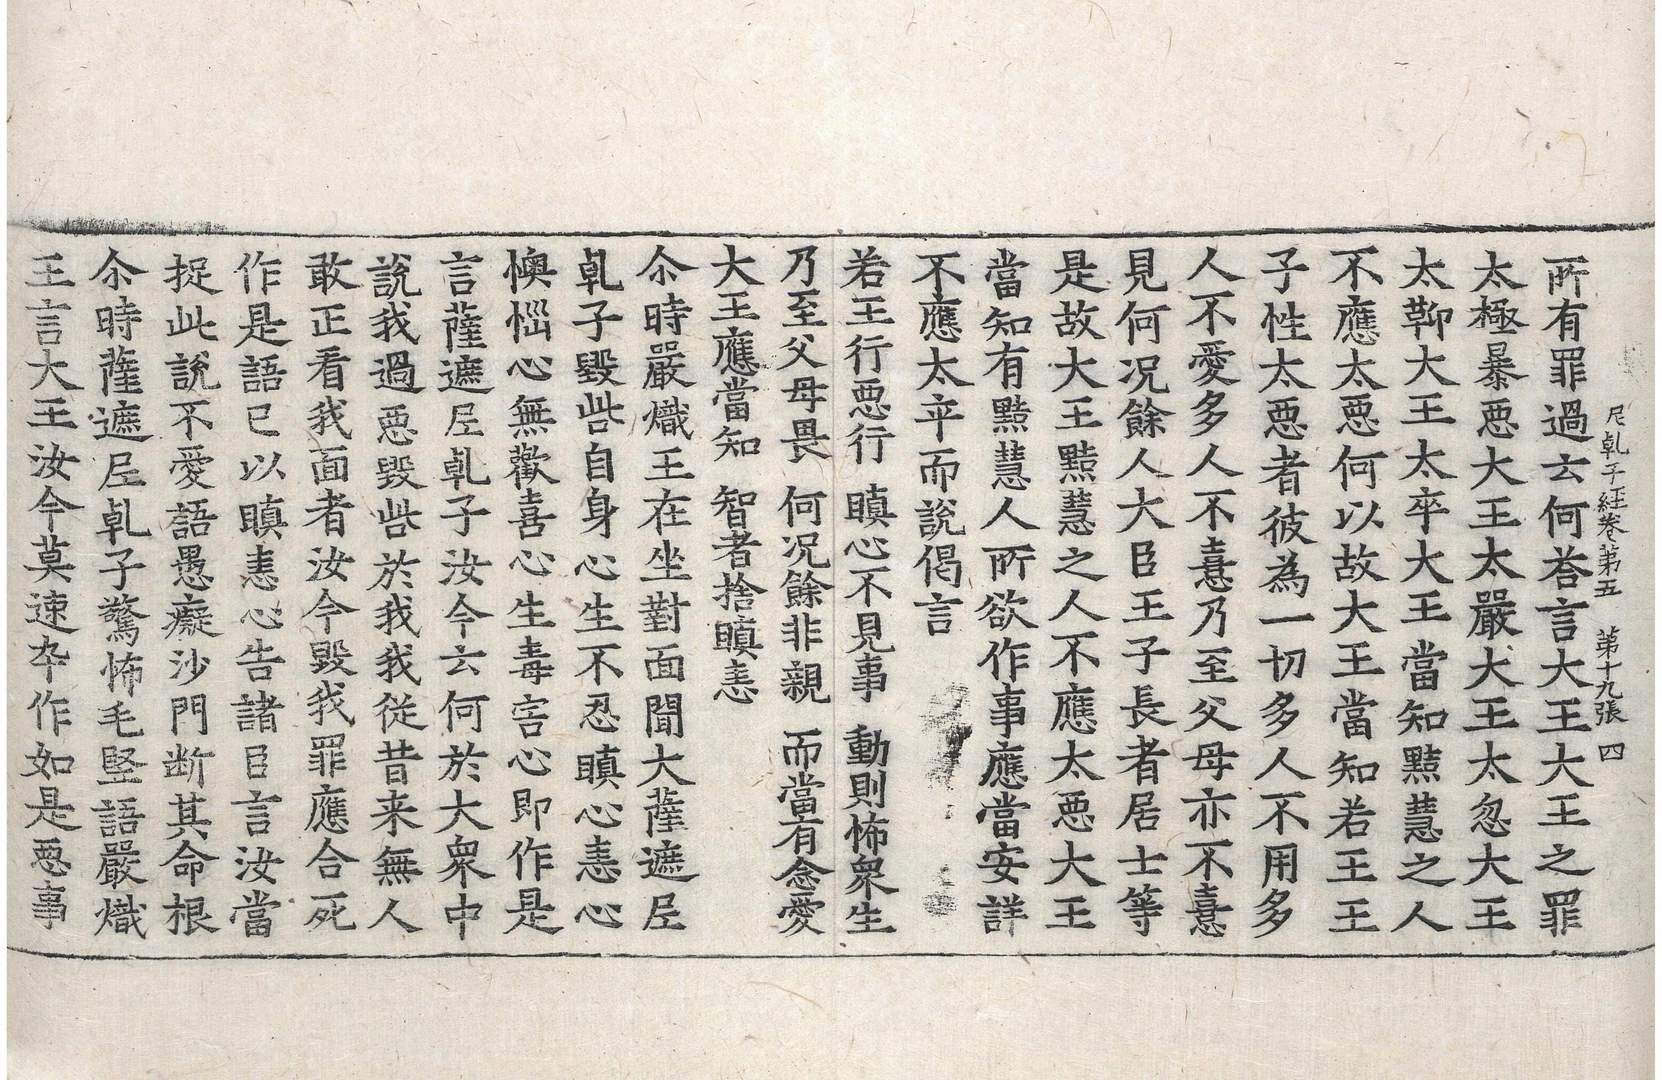 尼乹子經卷第五 第十九張 四
所有罪過云何荅言大王大王之罪
太極暴惡大王太嚴大王太忽大王
太䩭大王太卒大王當知黠慧之人
不應太惡何以故大王當知若王王
子性太惡者彼為一切多人不用多
人不愛多人不憙乃至父母亦不憙
見何况餘人大臣王子長者居士等
是故大王黠慧之人不應太惡大王
當知有黠慧人所欲作事應當安詳
不應太卒而說偈言
若王行惡行 瞋心不見事 動則怖衆生
乃至父母畏 何况餘非親 而當有念愛
大王應當知 智者捨瞋恚
尒時嚴熾王在坐對面聞大薩遮尼
乹子毀呰自身心生不忍瞋心恚心
懊惱心無歡喜心生毒害心即作是
言薩遮尼乹子汝今云何於大衆中
說我過惡毀呰於我我從昔来無人
敢正看我面者汝今毀我罪應合死
作是語已以瞋恚心告諸臣言汝當
捉此說不愛語愚癡沙門断其命根
尒時薩遮尼乹子驚怖毛竪語嚴熾
王言大王汝今莫速卒作如是惡事